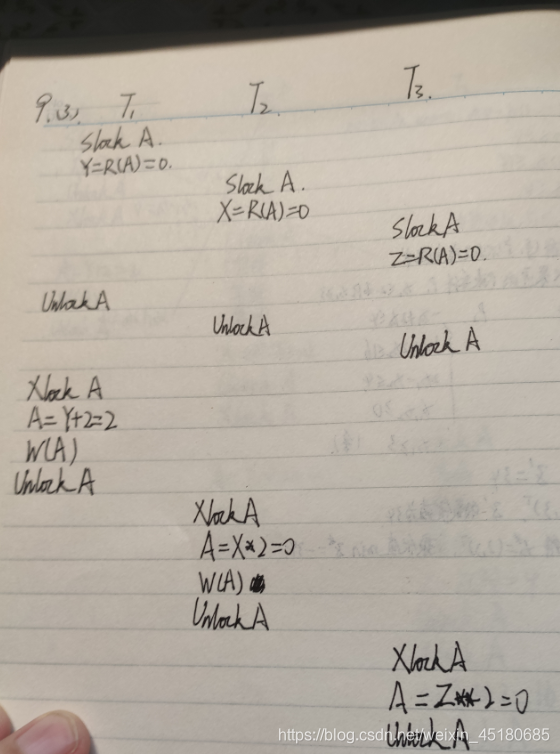 9.(3). T1 T2 T3.
Slock A.
Y=R(A)=0.
Slock A.
X=R(A)=0
Slock A
Z=R(A)=0.
Unlock A
Unlock A
Unlock A
Xlock A
A=Y+2=2
W(A)
Unlock A
Xlock A
A=X*2=0
W(A)
Unlock A
Xlock A
A=Z**2=0
Unlock A
https://blog.csdn.net/weixin_45180685